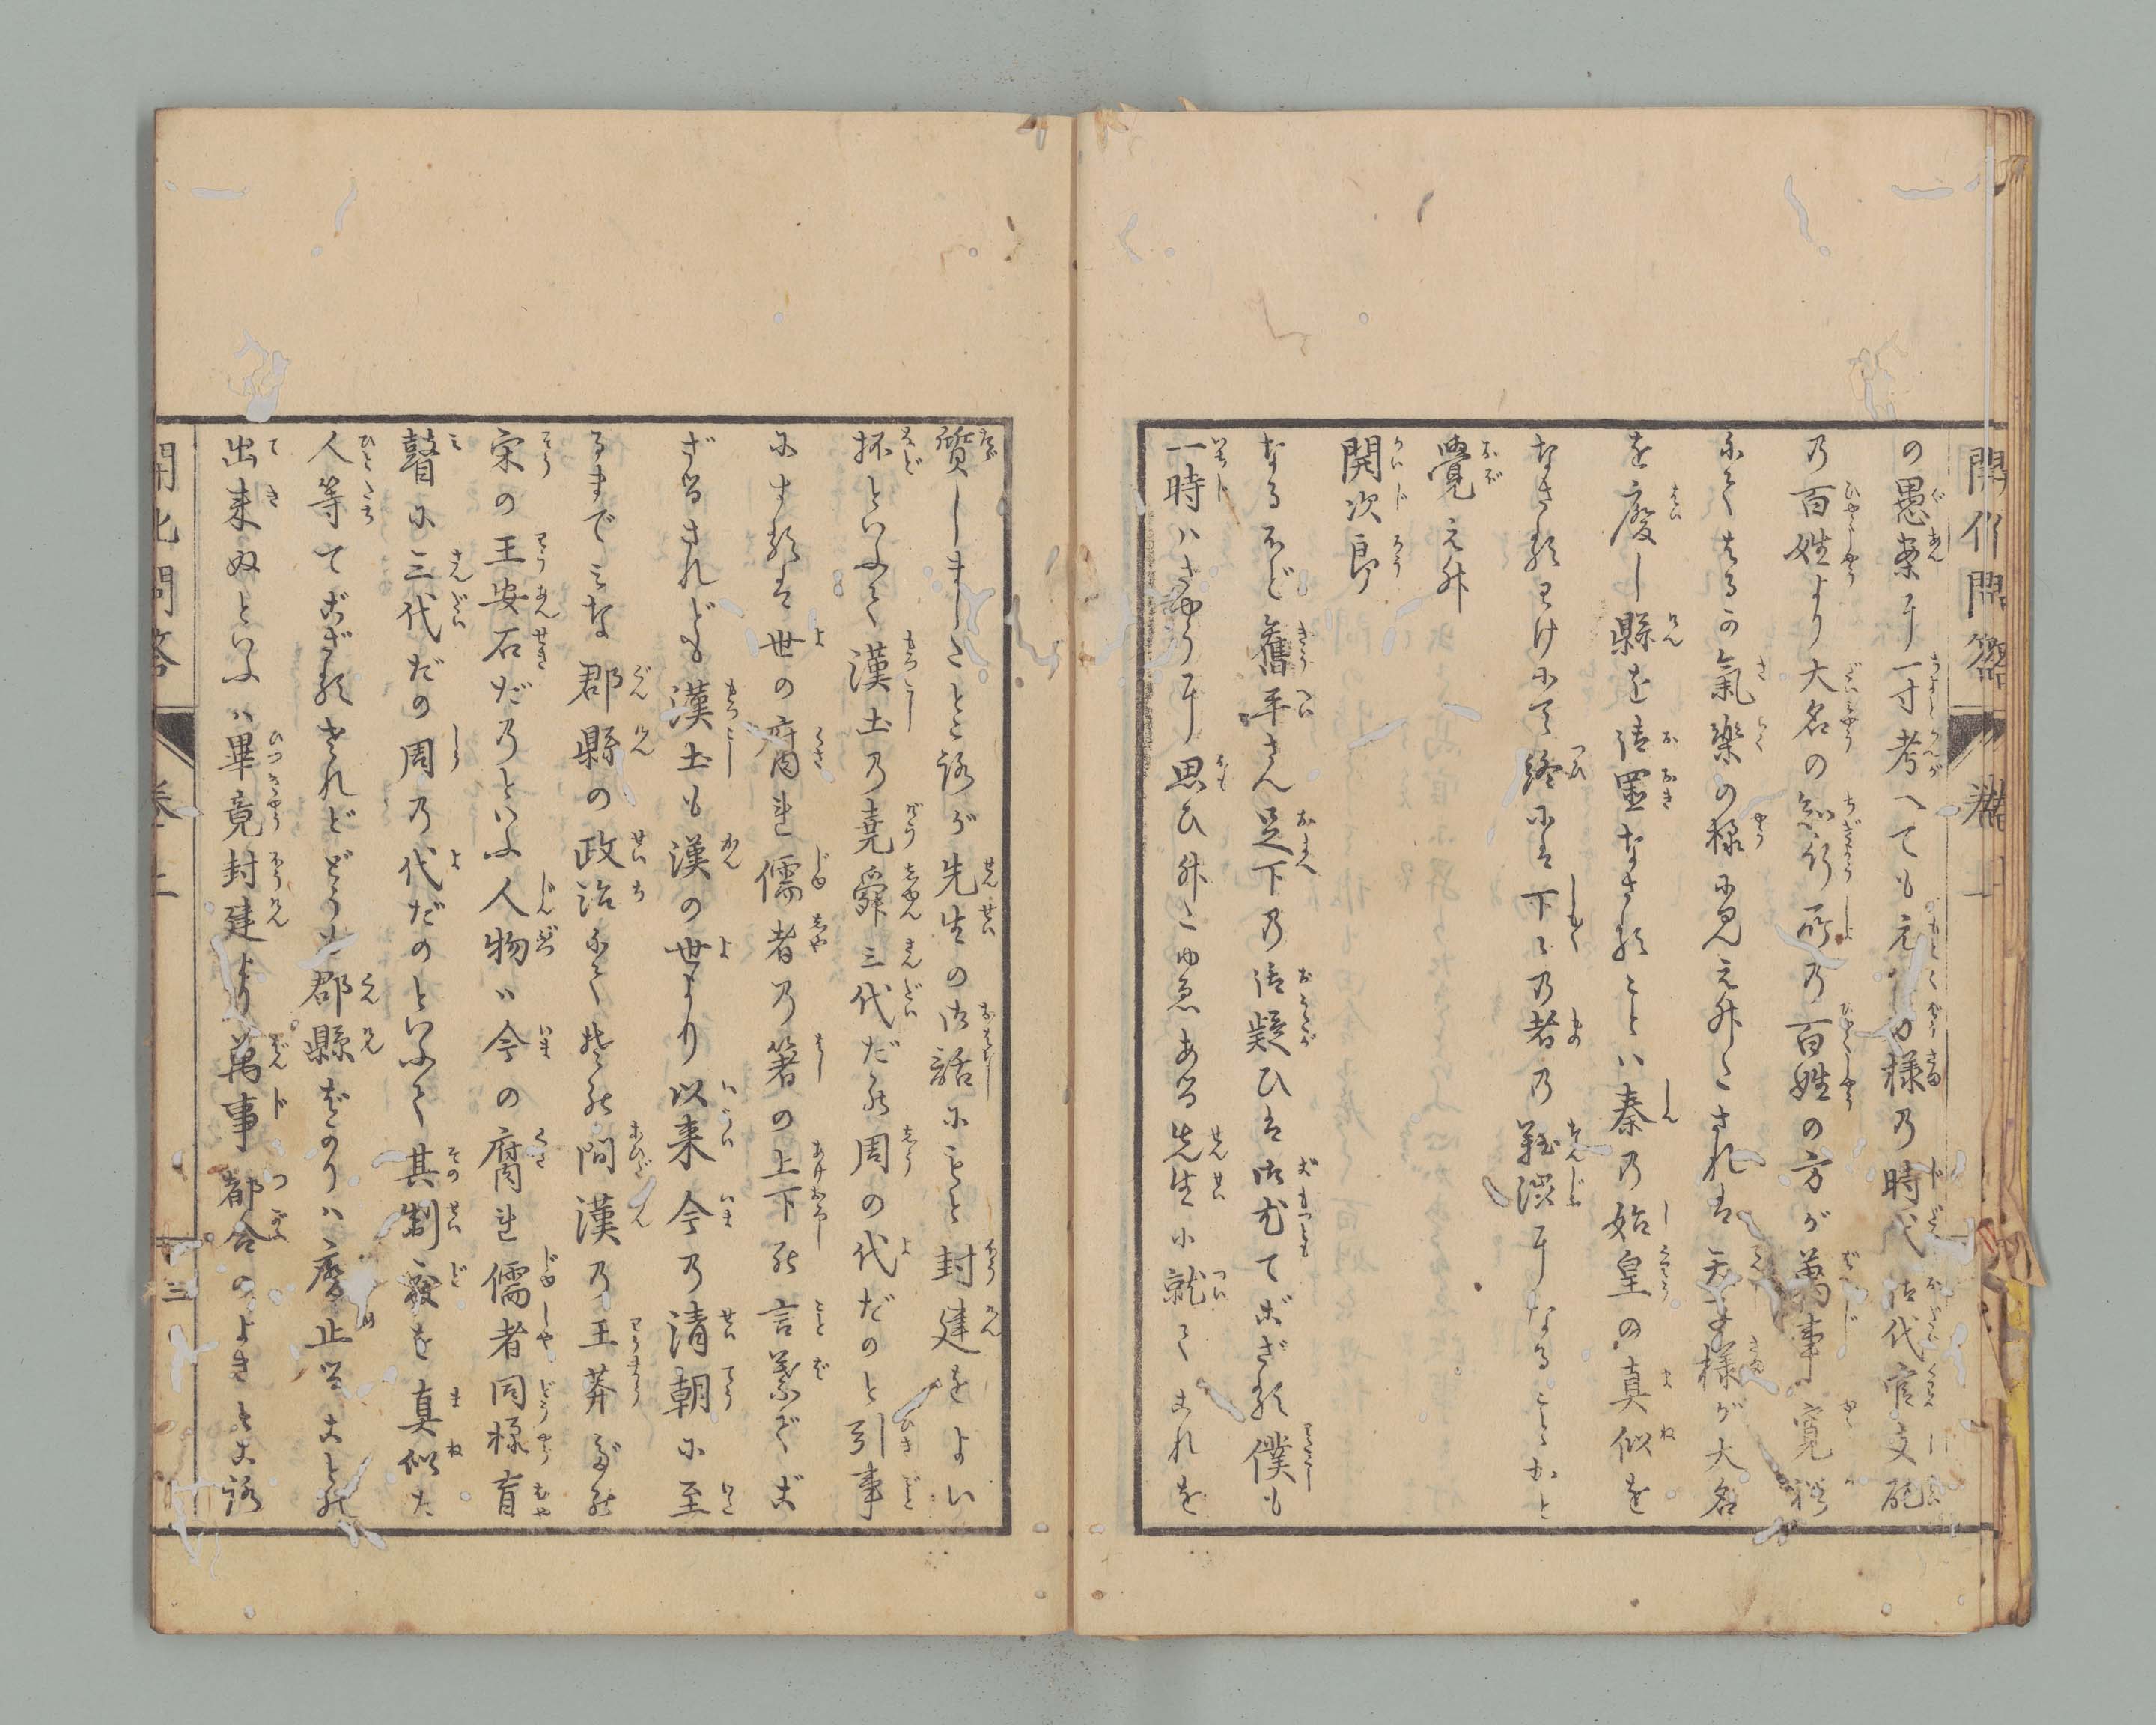 の愚案に一寸考へても元公方様の時代御代官支配
の百姓より大名の知行所の百姓の方が萬事寛裕
にてはるか氣樂の様に見え升たされば天子様が大名
を廃し縣を御置なさることハ秦の始皇の真似を
なさるわけにて終には下々の者の難渋になることかと
覺え升
開次郎
なるほど舊平さん足下の御疑ひは御尤でござる僕も
一時ハさやうに思ひ升たゆゑある先生に就てこれを
質しましたところが先生の御話にもと封建をよい
抔といふて漢土の堯舜三代だの周の代だのと引事
にするは世の腐れ儒者の箸の上下の言葉でご
ざるされども漢土も漢の世より以来今の清朝に至
るまでみな郡縣の政治にてその間漢の王莽だの
宋の王安石だのといふ人物ハ今の腐れ儒者同様盲
瞽に三代だの周の代だのといふて其制度を真似た
人等でござるけれどどうも郡縣ばかりハ廢止ることの
出来ぬといふハ畢竟封建より萬事都合のよきところ
開化問答 巻上 三